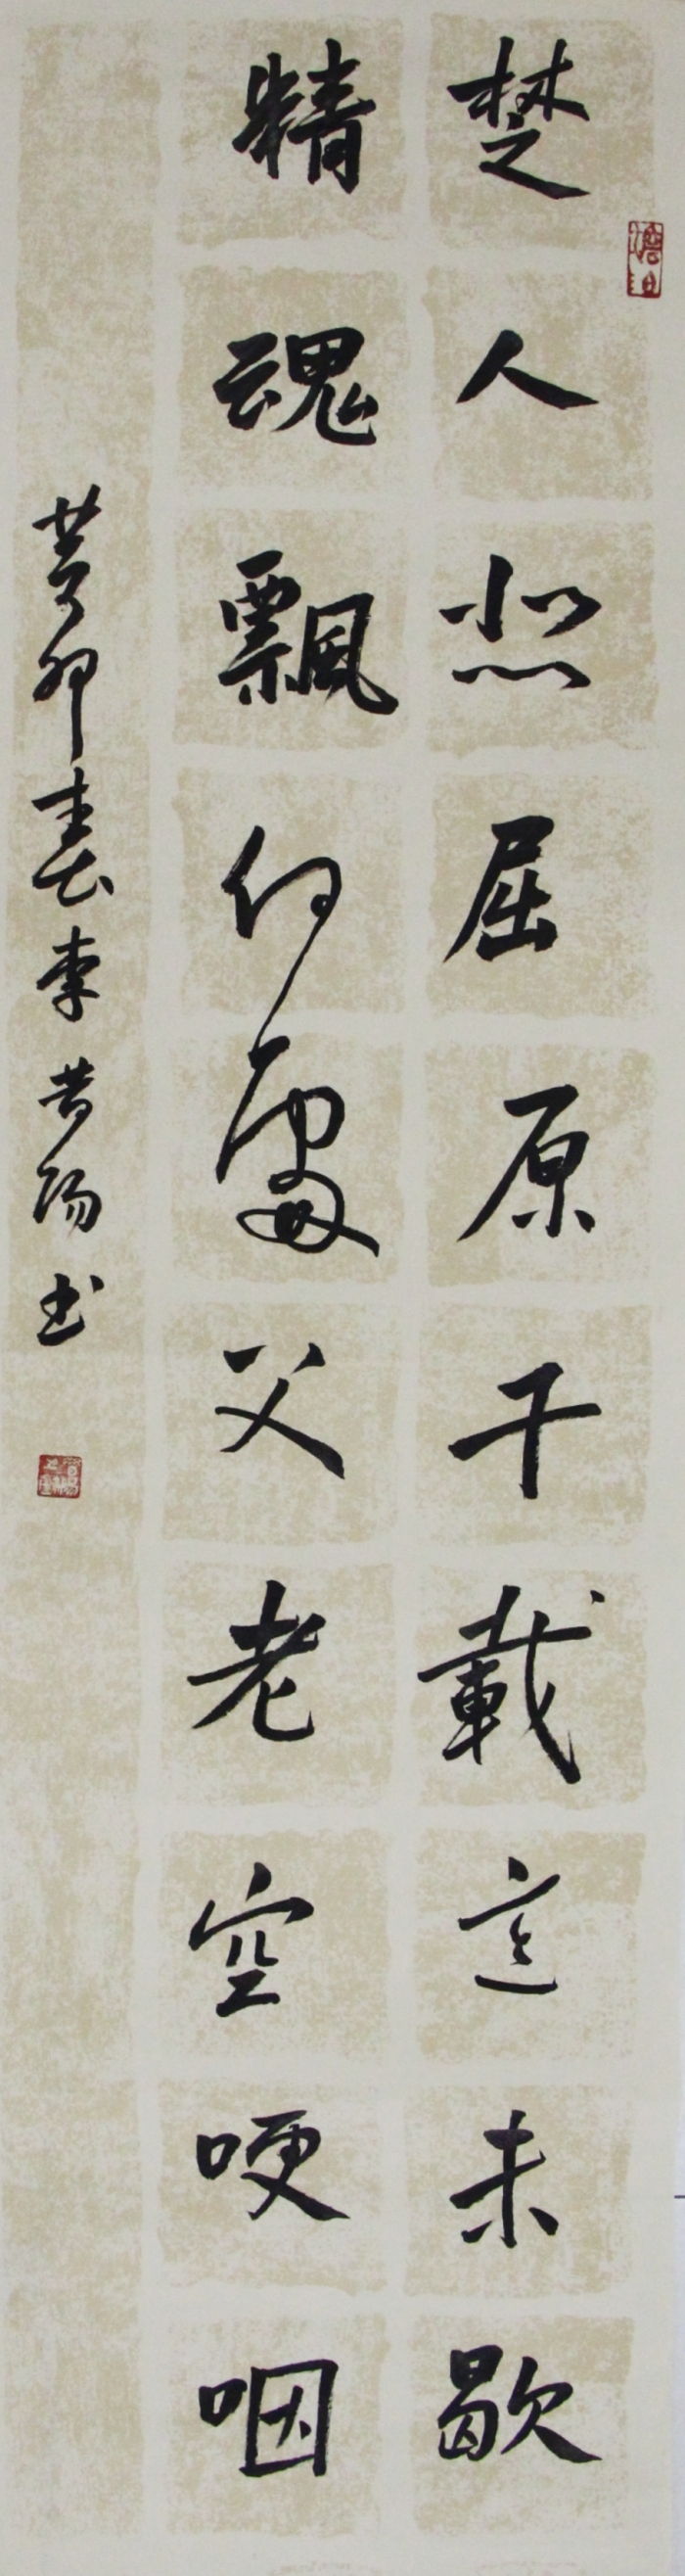 楚人悲屈原千載意未歇
精魂飄何處父老空哽咽
癸卯春李昔阳书